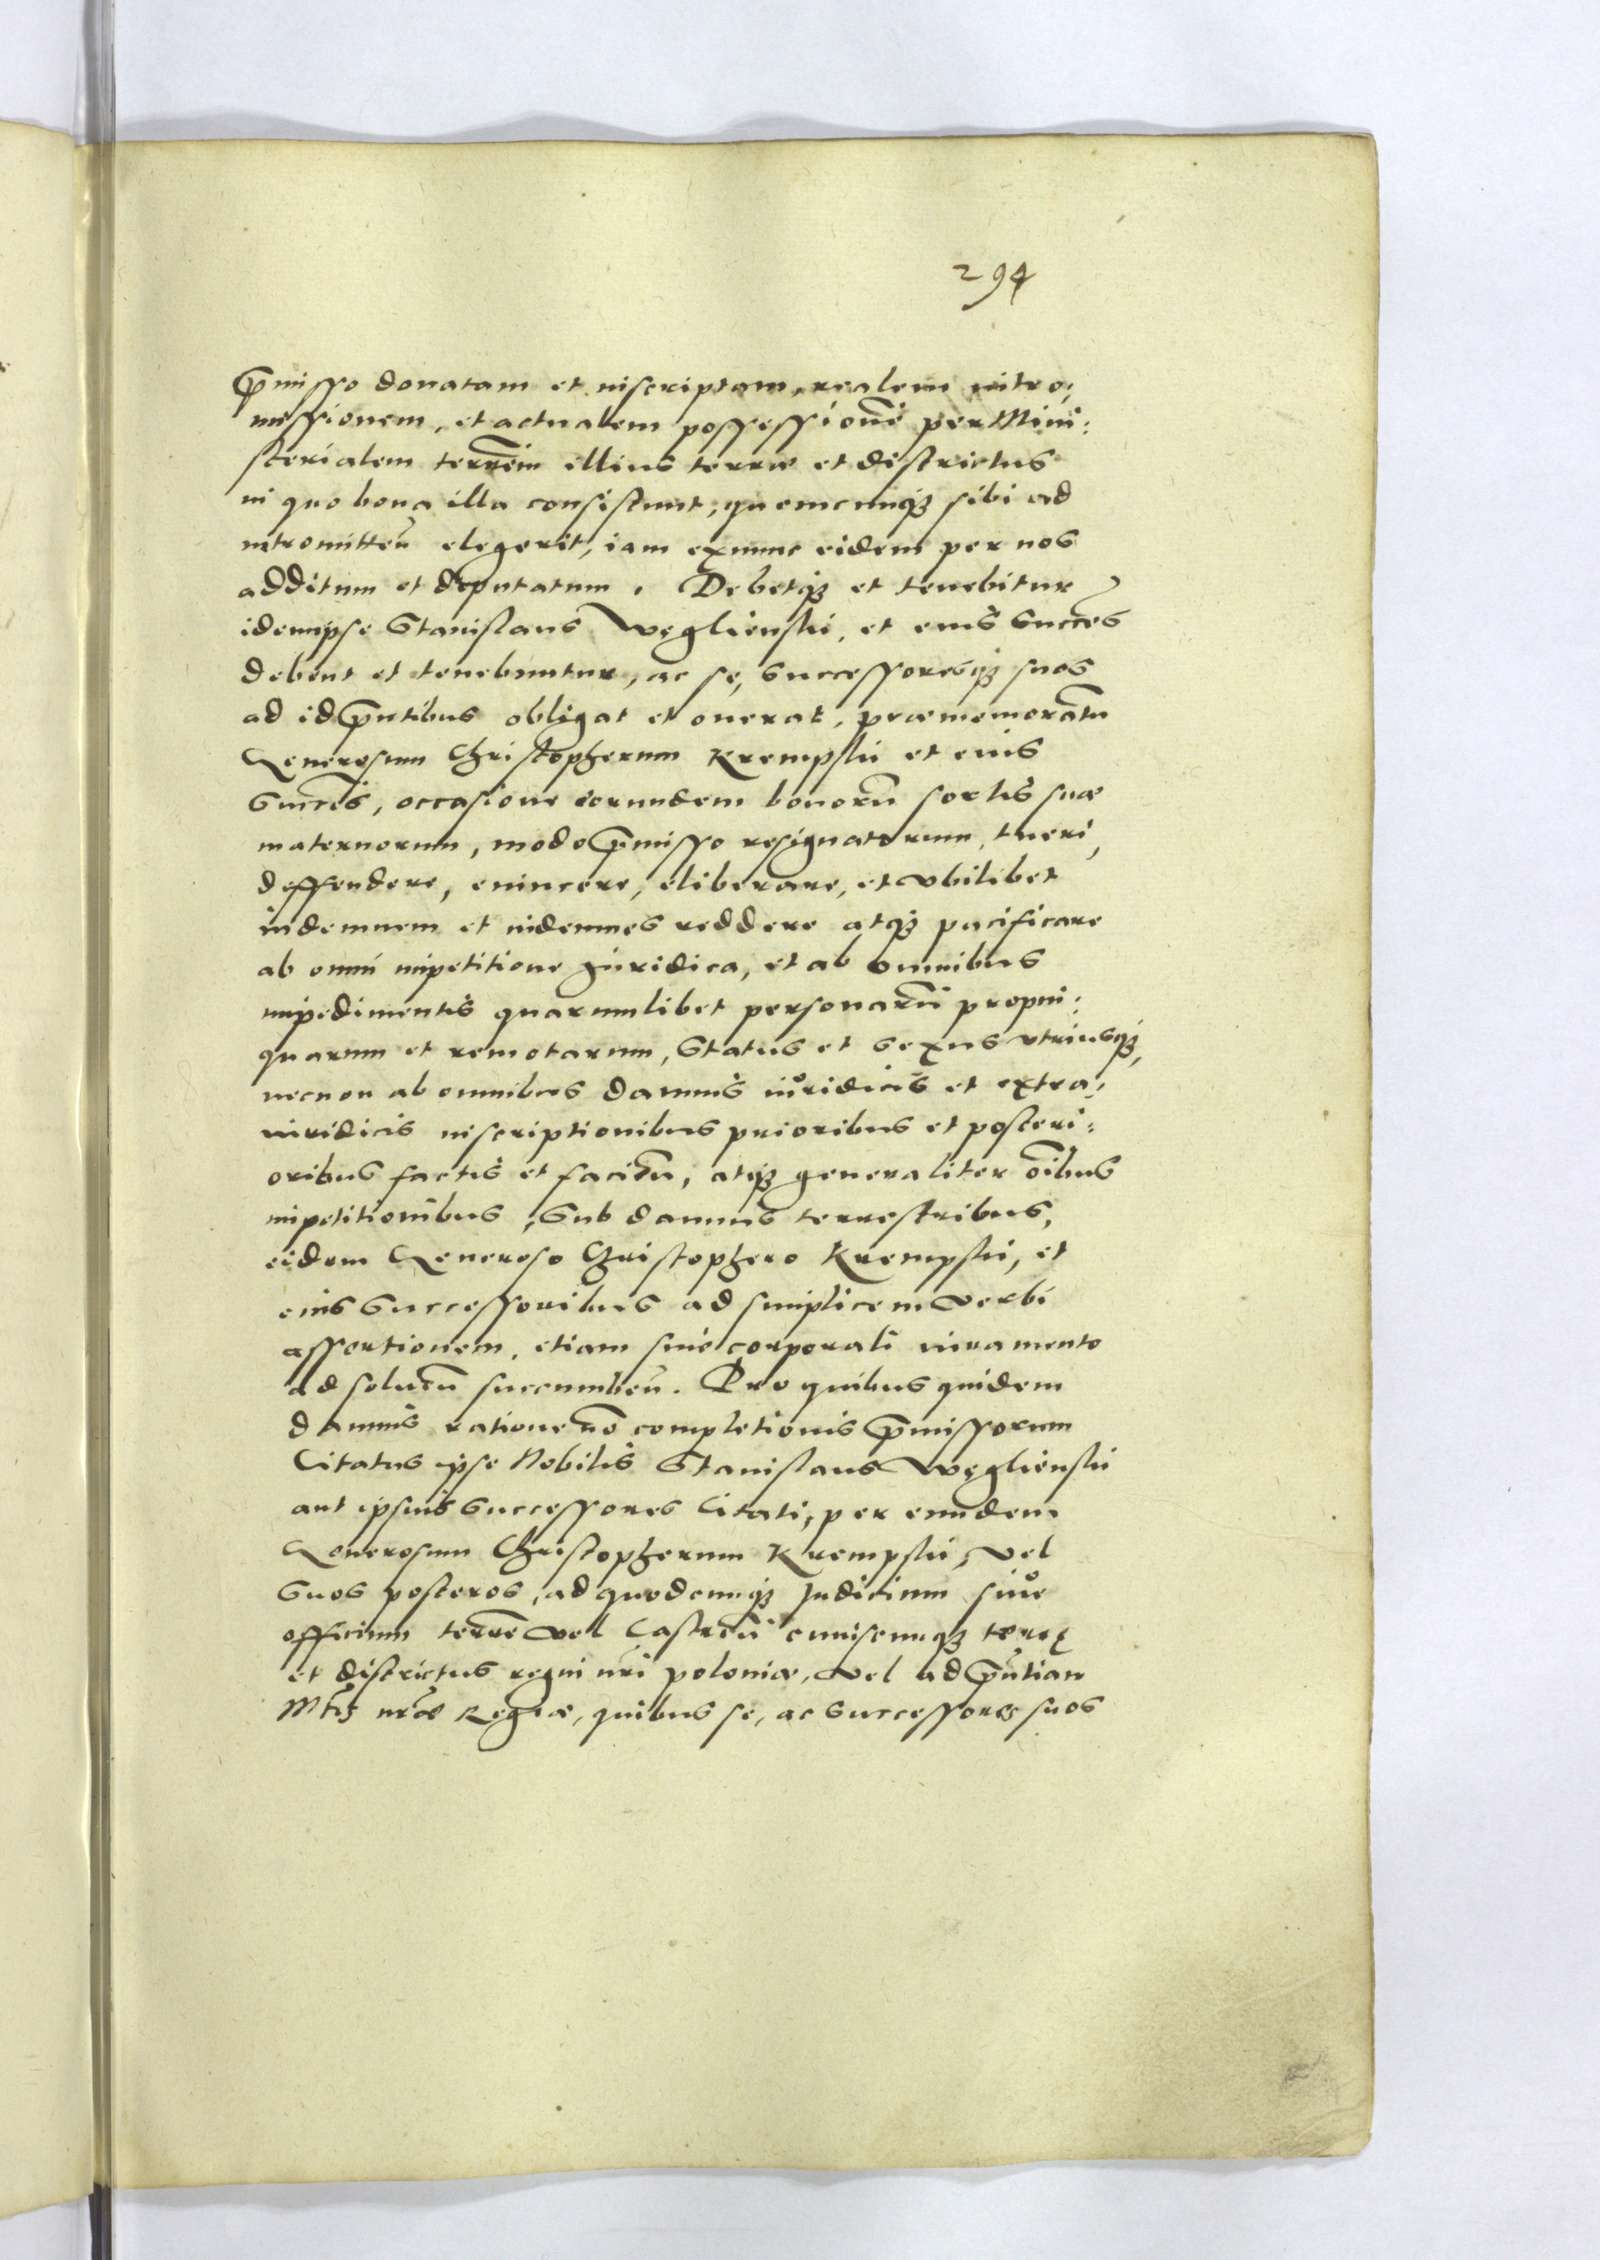 294
p̄misso donatam et inscriptam, realem intro,
missionem, et actualem possessionē per Mini:
sterialem terrēm illius terræ et districtus
in quo bona illa consistunt, quemcunqȝ sibi ad
intromittēn elegerit, iam exnunc eidem per nos
additum et deputatum. Debetqȝ et tenebitur
idemipse Stanislaus Węglienski, et eius Succes̄
debent et tenebuntur, ac se, Successoresqȝ suos
ad id p̄ntibus obligat et onerat, præmemoratū
Generosum Christopherum Krempski et eius
Succes̄, occasione eorundem bonorū sortis suæ
maternorum, modo p̄misso resignatorum, tueri,
deffendere, euincere, eliberare, et vbilibet
indemnem et indemnes reddere atqȝ pacificare
ab omni impetitione Juridica, et ab omnibus
impedimentis quarumlibet personarū propin:
quarum et remotarum, Status et Sexus vtriusqȝ,
necnon ab omnibus damnis iuridicis et extra,
iuridicis inscriptionibus prioribus et posteri:
oribus factis et faciēn, atqȝ generaliter oībus
impetitionibus, Sub damnis terrestribus,
eidem Generoso Christophero Krempski, et
eius Successoribus ad simplicem verbi
assertionem, etiam sine corporali iuramento
ad soluēn succumbēn. Pro quibus quidem
damnis ratione nō completionis p̄missorum
Citatus ipse Nobilis Stanislaus Węglienski
aut ipsius Successores Citati, per eundem
Generosum Christopherum Krempski, vel
Suos posteros, ad quodcunqȝ Judicium siue
officium terrē vel Castrēn cuiuscunqȝ terræ
et districtus regni nr̄i poloniæ, vel ad p̄ntiam
Mtis nr̄æ Regiæ, quibus se, ac Successores suos